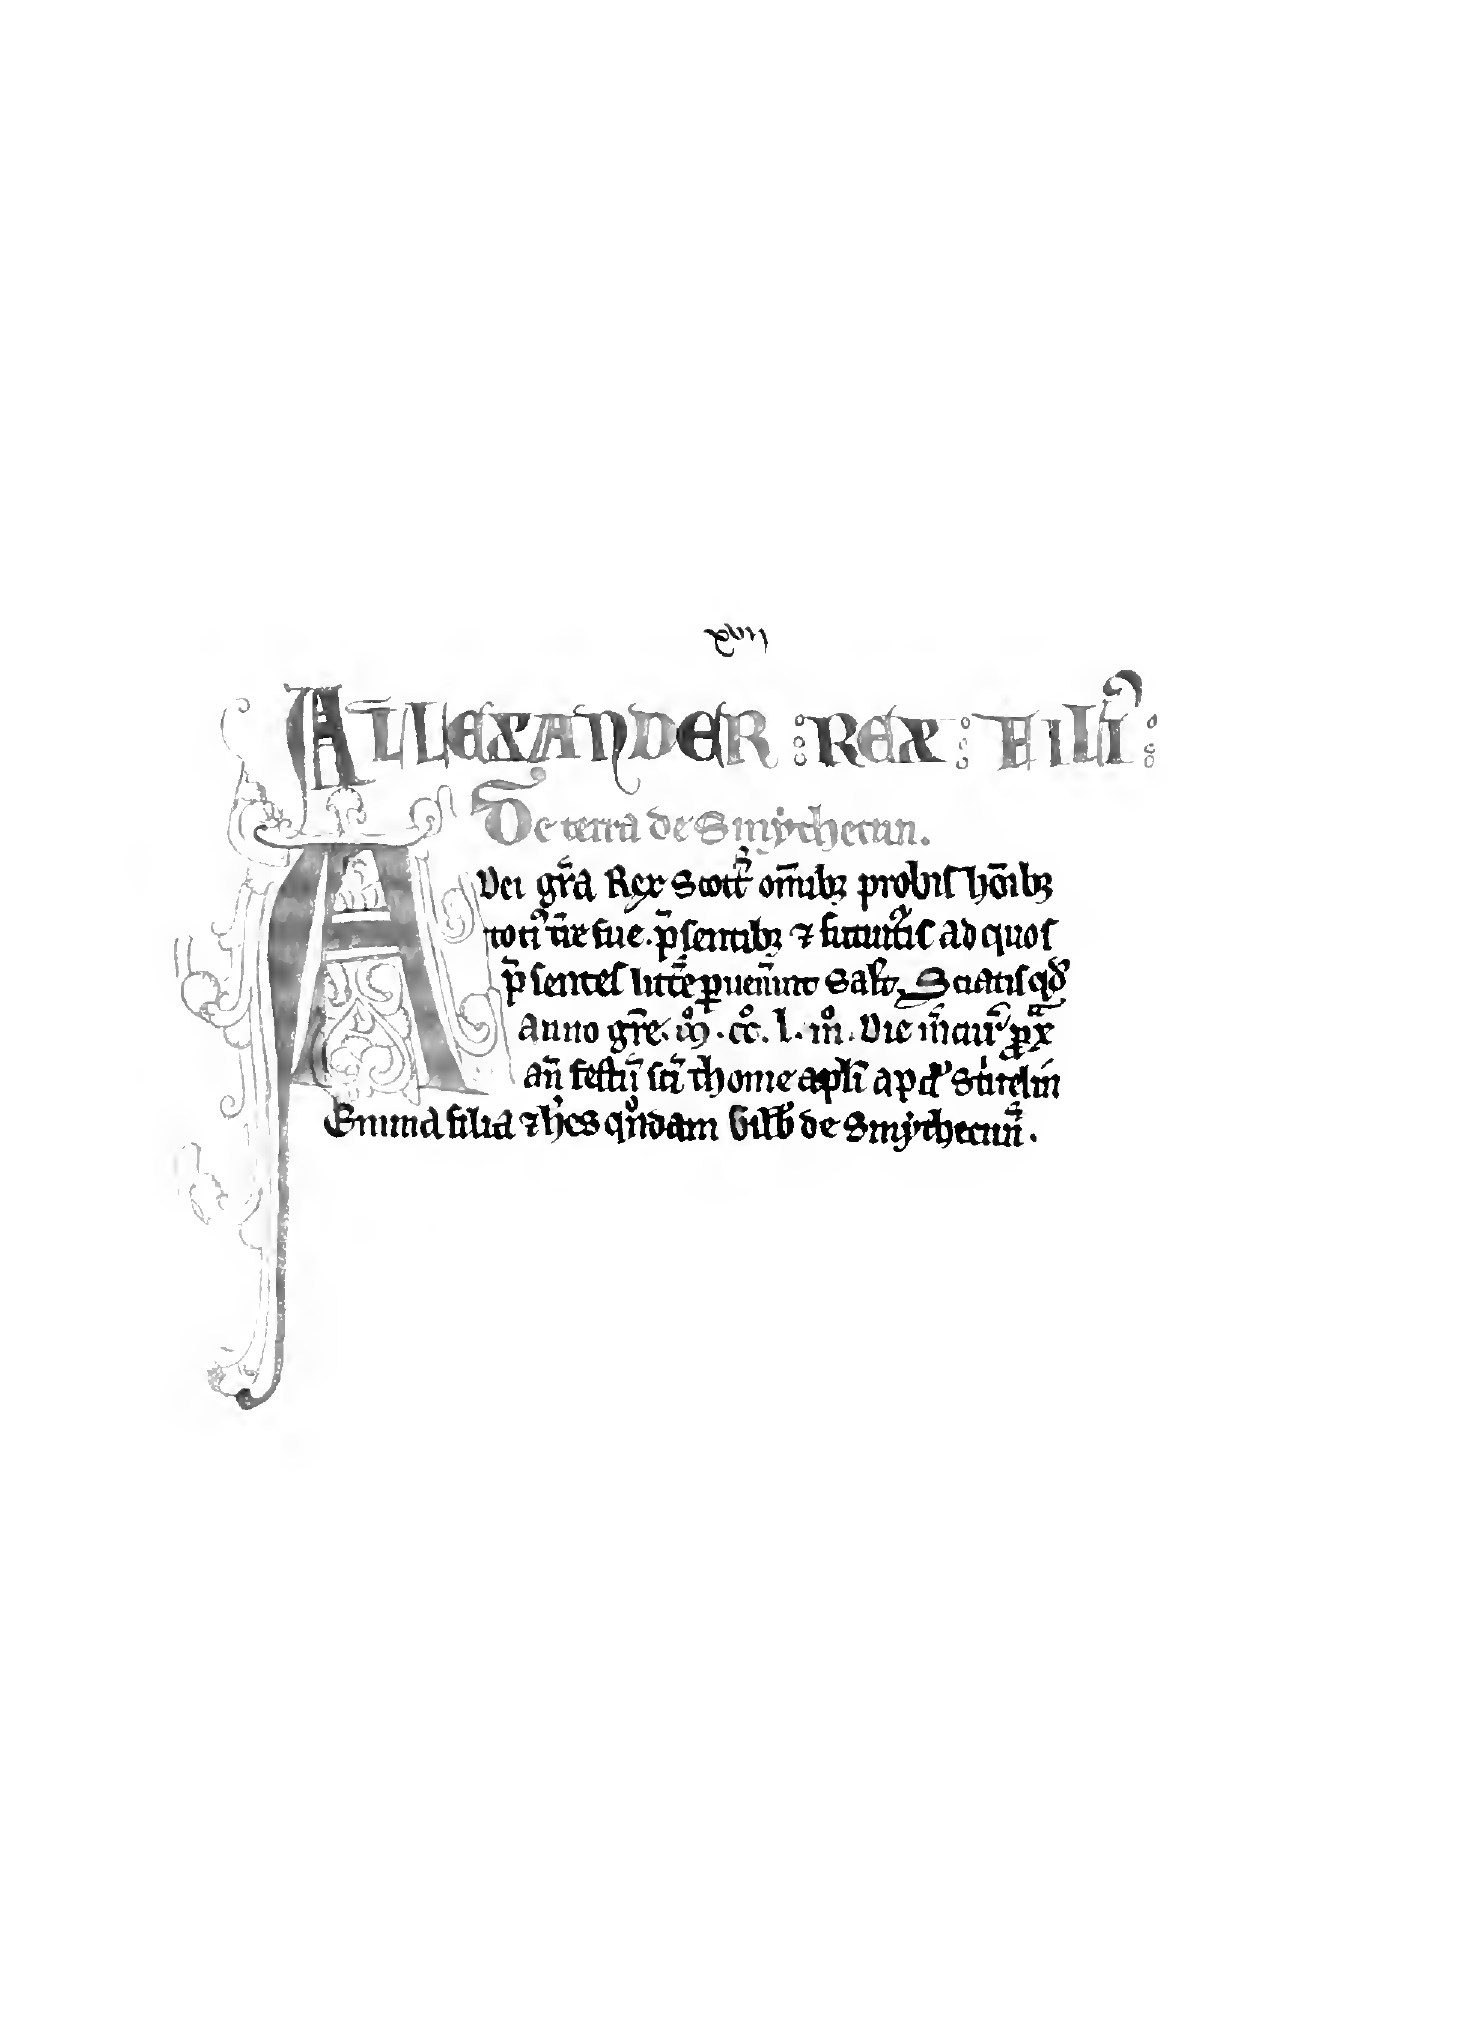 xvii
ALLEXANDER : REX : FILI' :
De terra de Smythetun.
A Dei gr̄a Rex Scott' om̄ibȝ probis hōibȝ
toti' t̄re sue. p̄sentibȝ ⁊ futuris ad quos
p̄sentes litt̄e puen̄int Salt̄. Sciatis qd̄
Anno gr̄e. m̊. cc̊. l. m̊. Die m̄cur' px̄
an̄ festū sc̄i thome apl̄i apd' Striuelin
Emma filia ⁊ h'es qͦndam Gilb̄ de Smythetun̄.